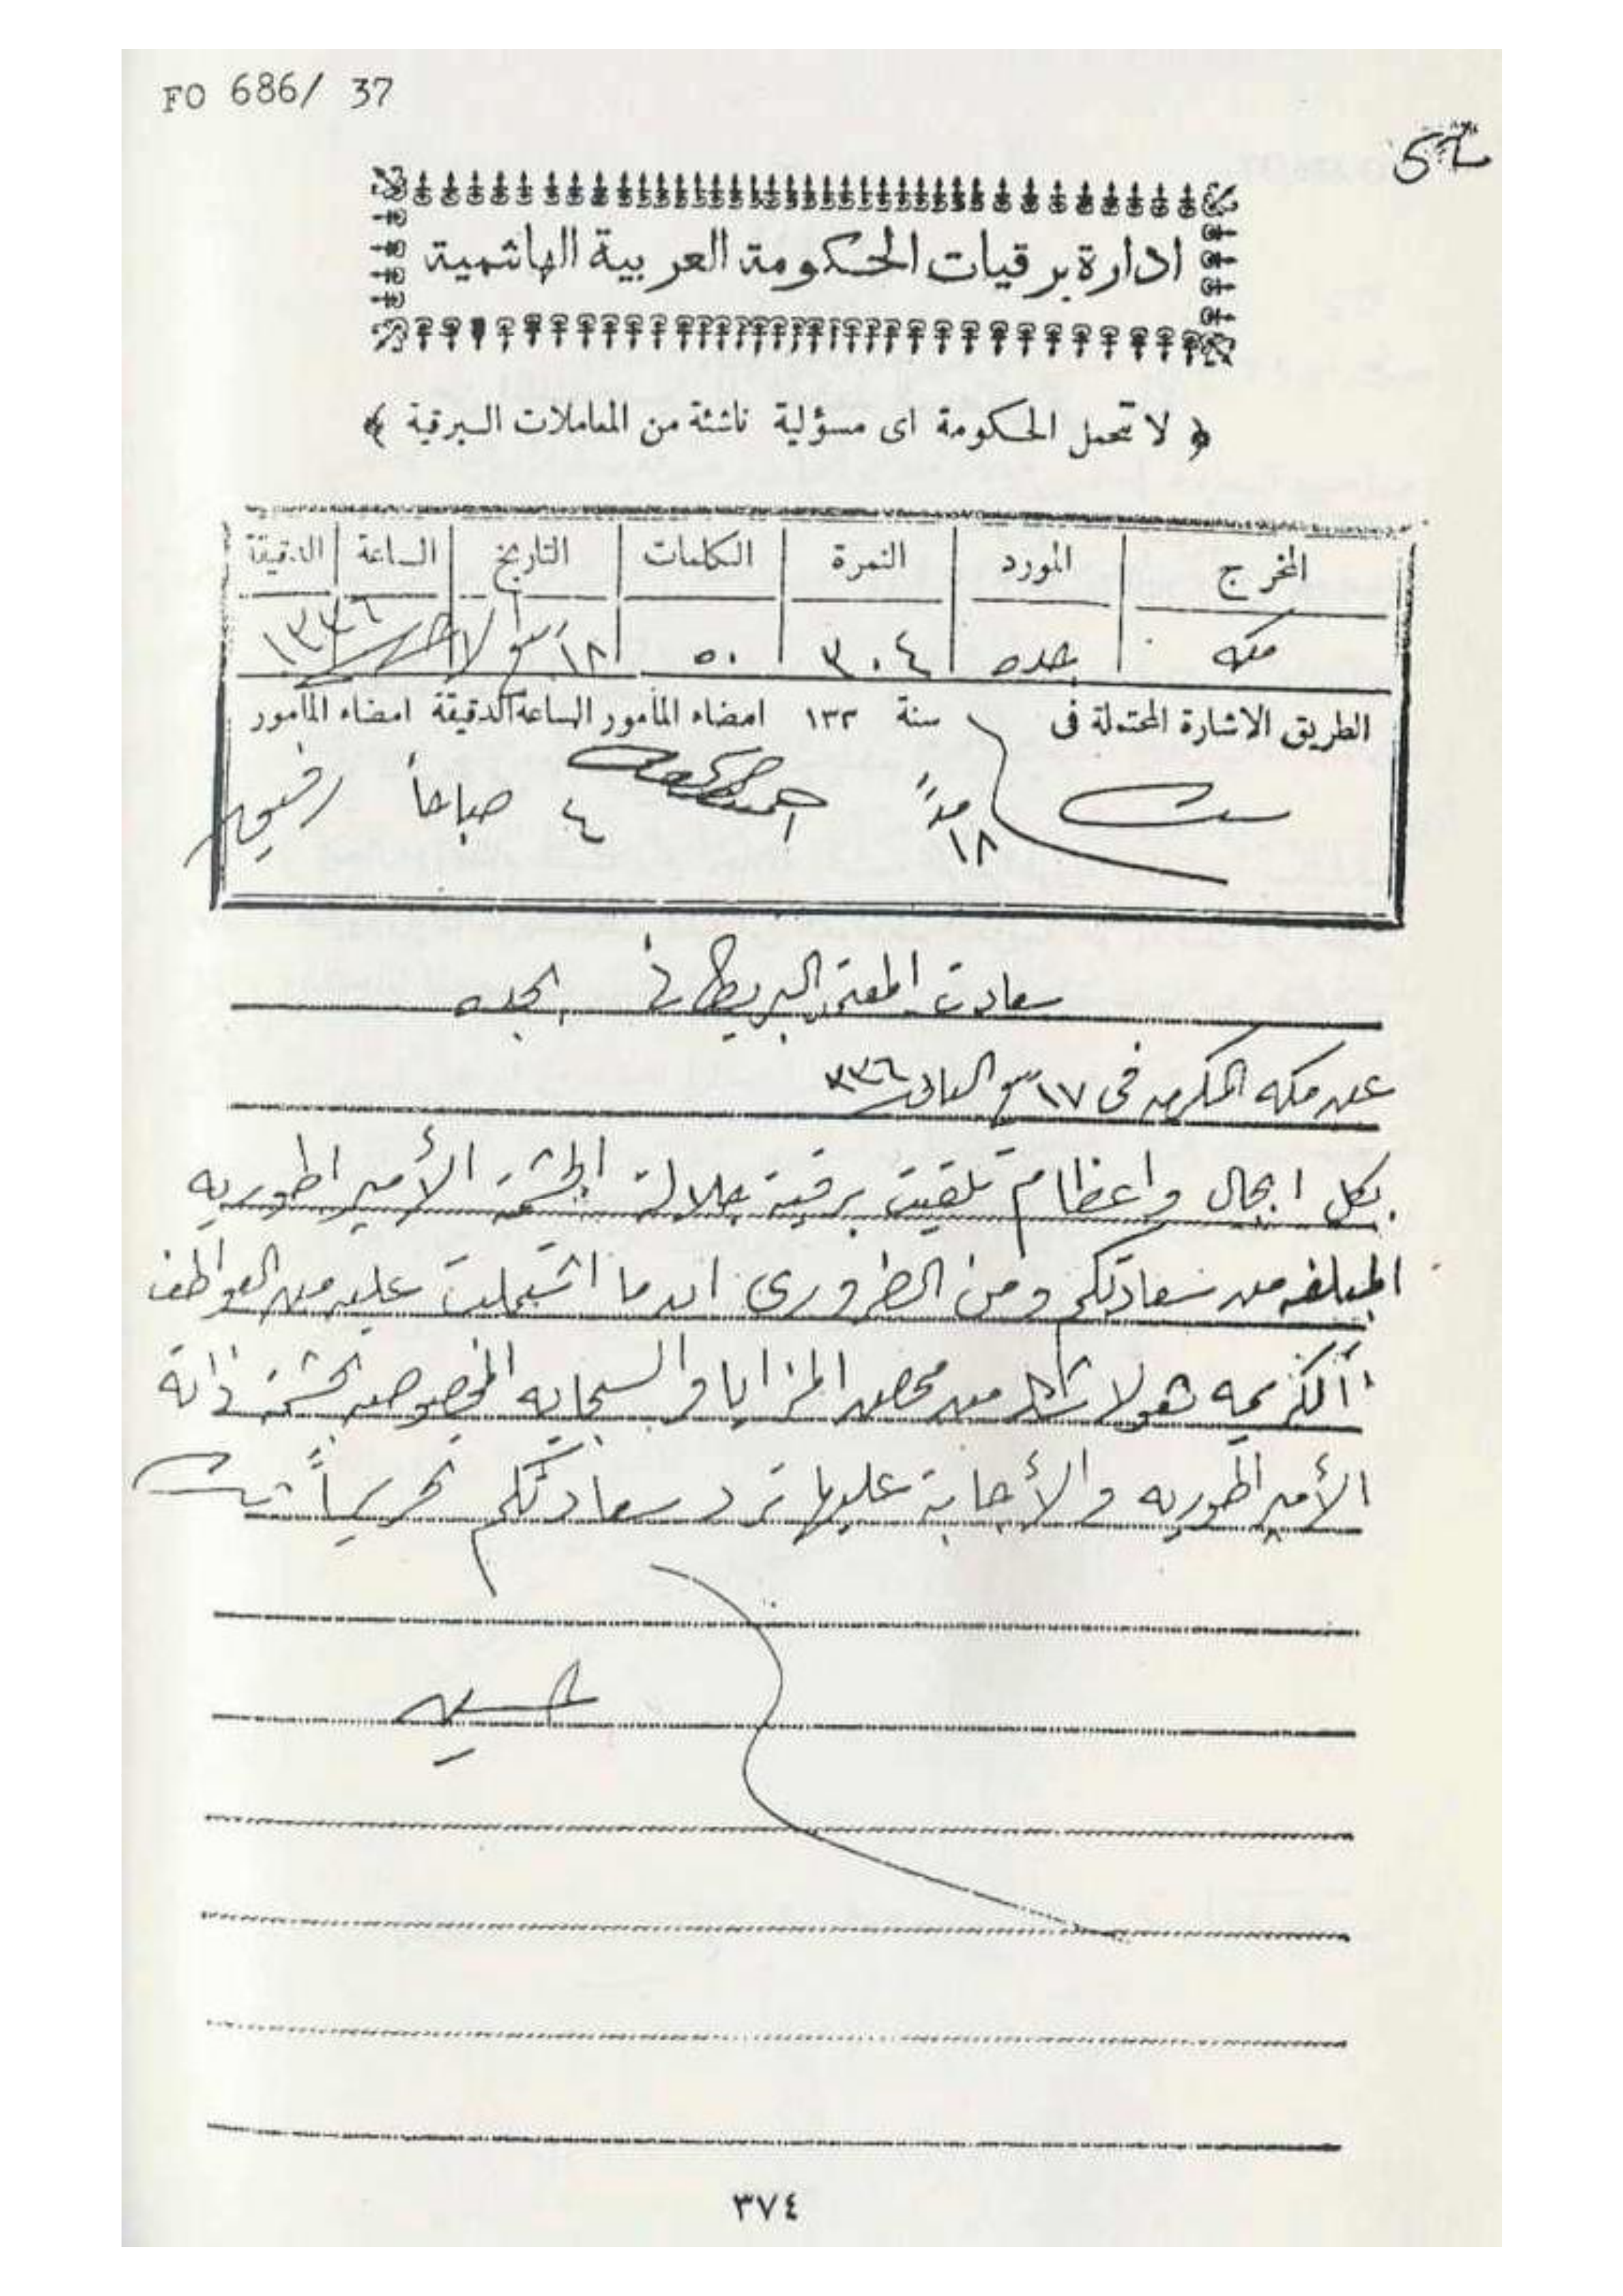 FO 686/ 37
ادارة برقيات الحكومة العربية الهاشمية
﴿ لا تتحمل الحكومة اى مسؤلية ناشئة من المعاملات البرقية ﴾
المخرج المورد النمرة الكلمات التاريخ الساعة الدقيقة
مكه جده ٣٠٤ ٥٠ ١٨ ١٣٣٦
الطريق الاشارة المحتملة فى سنة ١٣٢ امضاء المأمور الساعة الدقيقة امضاء المأمور
١٨ ٤ صباحاً رفيق
سعادت المعتمد البريطانى بجده
عن مكه المكرمه فى ١٧ ٣٣٦
بكل اجلال واعظام تلقيت برقية جلالة الحشمة الأمبراطوريه
المبلغه من سعادتكم ومن الضرورى ان ما اشتملت عليه من العواطف
الكريمه هو لا شك من محض المزايا والسجايه المخصوصه بحشمة ذاته
الأمبراطوريه والأجابة عليها ترد سعادتكم تحريراً
حسين
٣٧٤